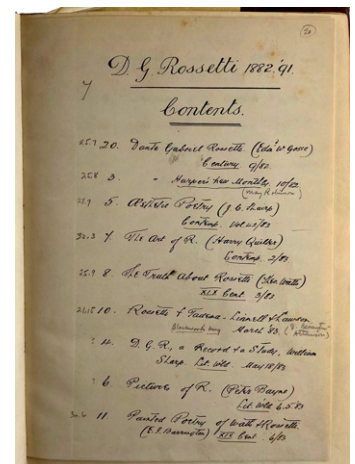 D. G. Rossetti 1882-'91.
Contents.
25.7 20. Dante Gabriel Rossetti (Edmd W Gosse)
Century 9/82
25.8 3. " Harper's New Monthly. 10/82
(Mary Robinson)
5. Aesthetic Poetry (J. C. Shairp)
Contemp. Vol 42/83
7. The Art of R. (Harry Quilter)
Contemp. 2/83
25.9 8. The Truth About Rossetti (Theo Watts)
XIX Cent. 3/83
10. Rossetti & Linnell & Lawson
March '83.
? 4. D. G. R., a Record & a Study. William
Sharp. Lit. Wld. May 18/83
? 6. Pictures of R. (Peter Bayne)
Lit. Wld 6.5.83
30.6 11. Painted Poetry of Watts & Rossetti
(E. I. Barrington) XIX Cent. 6/83